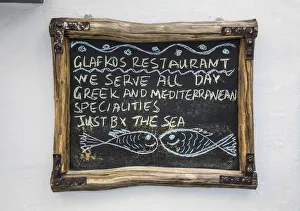 GLAFKOS RESTAURANT
WE SERVE ALL DAY
GREEK AND MEDITERRANEAN
SPECIALITIES
JUST BY THE SEA